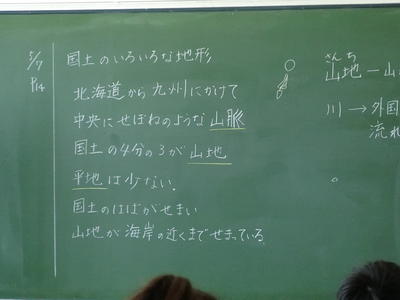 5/7
P14
国土のいろいろな地形
北海道から九州にかけて
中央にせぼねのような山脈
国土の4分の3が山地
平地は少ない.
国土のはばがせまい
山地が海岸の近くまでせまっている
さんち
山地ー山
川→外国
流れ